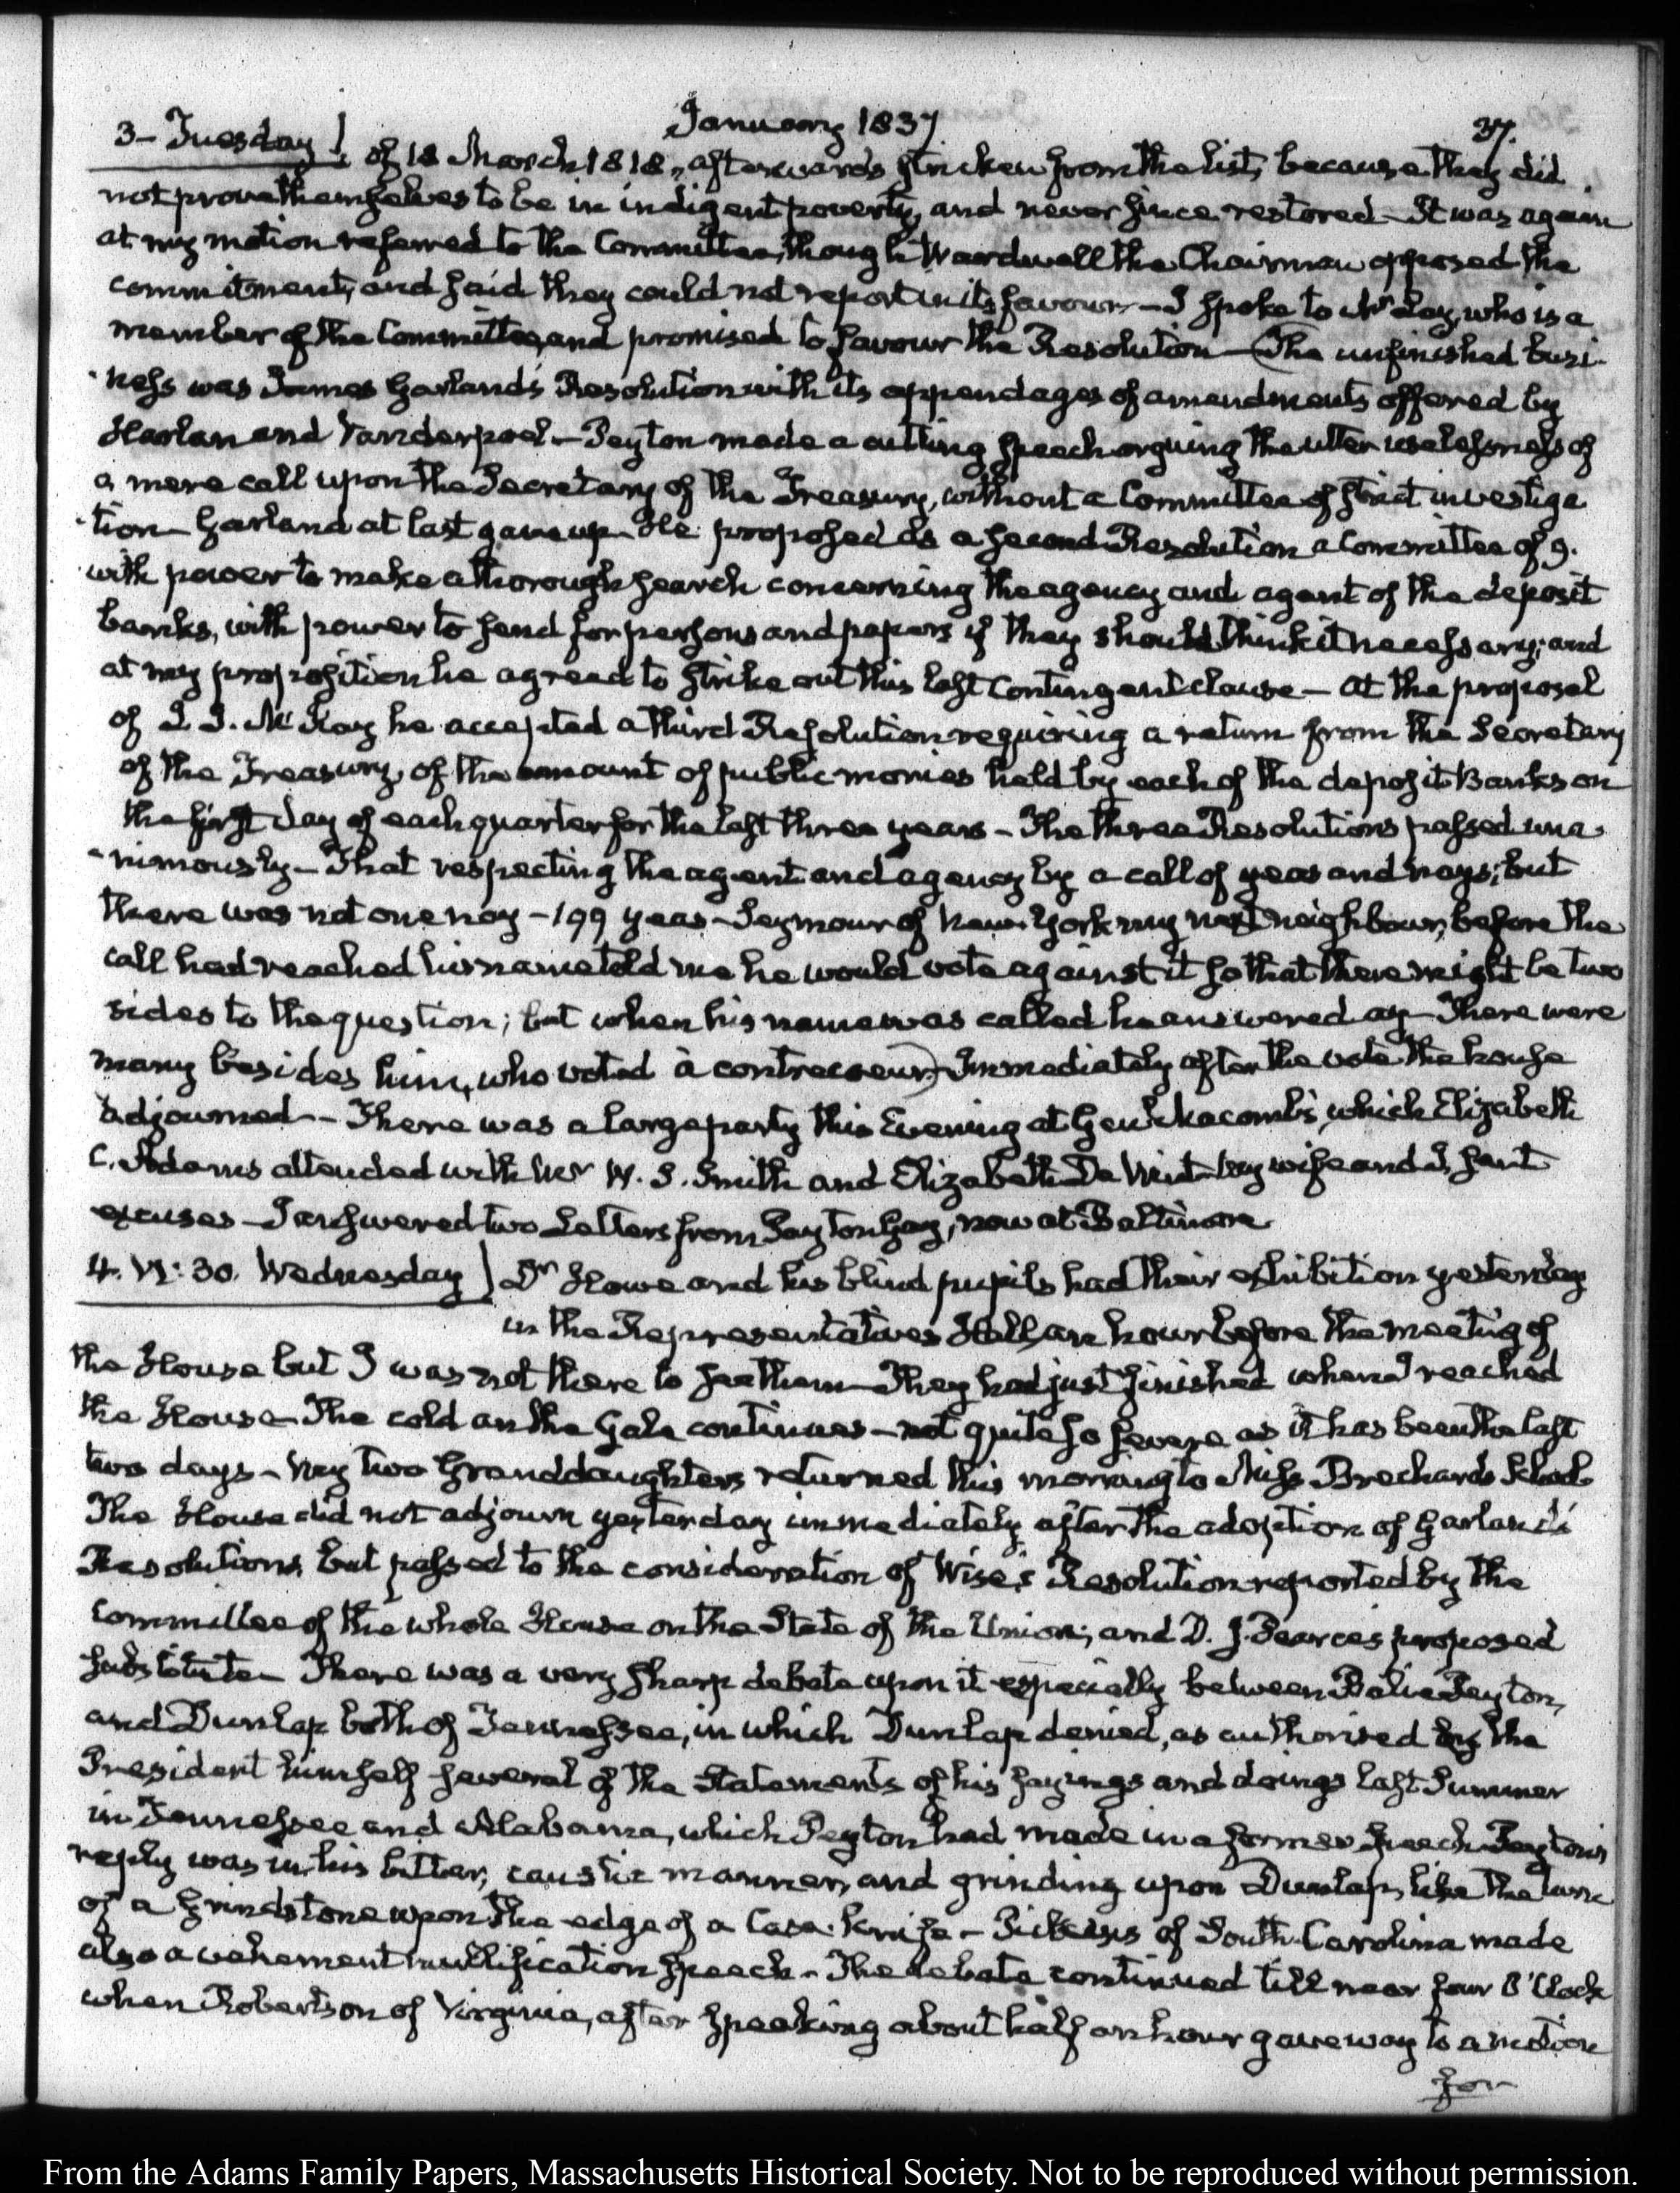 January 1837
37.
3— Tuesday } of 18 March 1818, afterwards stricken from the list, because they did
not prove themselves to be in indigent poverty, and never since restored— It was again
at my motion referred to the Committee, though Wardwell the Chairman opposed the
commitment, and said they could not report in its favour— I spoke to Mr Lay, who is a
member of the Committee, and promised to favour the Resolution— (The unfinished busi-
-ness was James Garland's Resolution with its appendages of amendments offered by
Harlan and Vanderpoel— Peyton made a cutting speech arguing the utter uselessness of
a mere call upon the Secretary of the Treasury, without a Committee of strict investiga
-tion— Garland at last gave up. He proposed as a second Resolution a Committee of 9.
with power to make a thorough search concerning the agency and agent of the deposit
banks, with power to send for persons and papers if they should think it necessary; and
at my proposition he agreed to strike out this last contingent clause— at the proposal
of J. J. McKay he accepted a third Resolution requiring a return from the Secretary
of the Treasury, of the amount of public monies held by each of the deposit Banks on
the first day of each quarter for the last three years— The three Resolutions passed una-
-nimously— That respecting the agent and agency by a call of yeas and nays; but
there was not one nay—199 yeas— Seymour of New-York my next neighbour, before the
call had reached his name told me he would vote against it so that there might be two
sides to the question; but when his name was called he answered ay— There were
many besides him, who voted à contrecoeur) Immediately after the vote the house
adjourned— There was a large party this Evening at Genl Macomb's, which Elizabeth
C. Adams attended with Mr W. S. Smith and Elizabeth De Wint— My wife and I, sent
excuses— I answered two Letters from Payton Gay, now at Baltimore
4. VI: 30. Wednesday } Dr Howe and his blind pupils had their exhibition yesterday
in the Representatives Hall, an hour before the meeting of
the House but I was not there to see them— They had just finished when I reached
the House— The cold an the Gale continues— not quite so severe as it has been the last
two days— My two Granddaughters returned this morning to Miss Brechard's School
The House did not adjourn yesterday immediately after the adoption of Garland's
Resolutions, but passed to the consideration of Wise's Resolution reported by the
Committee of the whole House on the State of the Union; and D. J. Pearce's proposed
substitute— There was a very sharp debate upon it especially between Balie Peyton,
and Dunlap both of Tennessee, in which Dunlap denied, as authorised by the
President himself several of the Statements of his sayings and doings last Summer
in Tennessee and Alabama, which Peyton had made in a former Speech Peyton's
reply was in his bitter, caustic manner, and grinding upon Dunlap, like the turn
of a Grindstone upon the edge of a Case-knife— Pickens of South-Carolina made
also a vehement nullification Speech— The debate continued till near four O'Clock
when Robertson of Virginia, after speaking about half an hour gave way to a motion
for
From the Adams Family Papers, Massachusetts Historical Society. Not to be reproduced without permission.